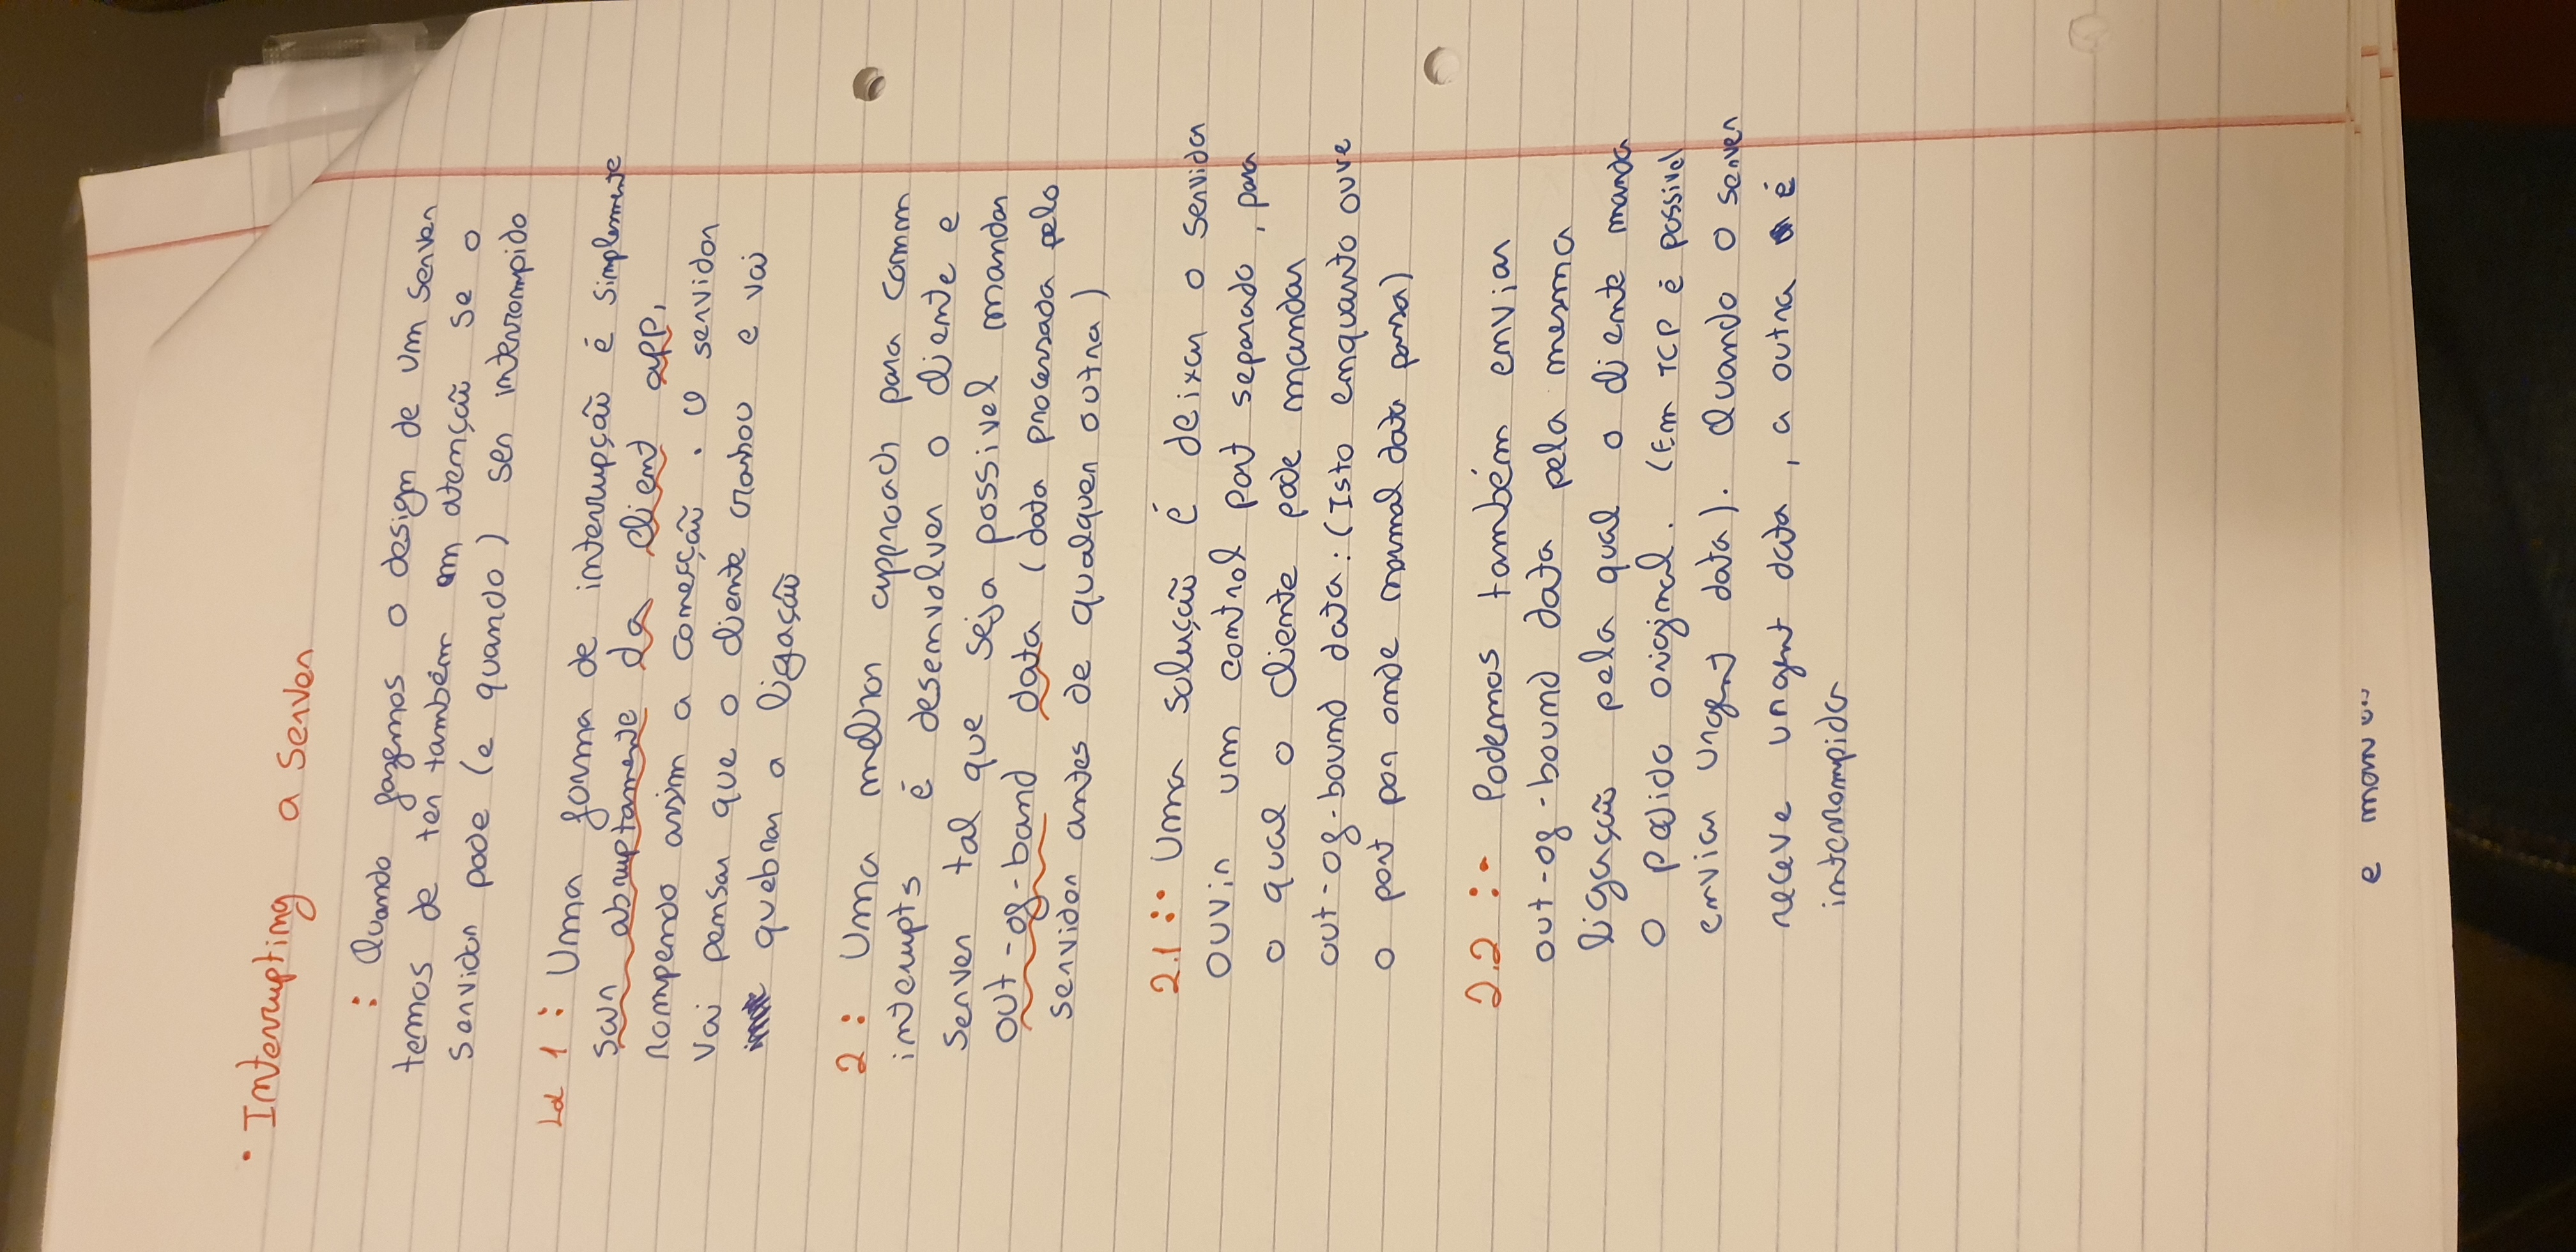 • Interrupting a Server
: Quando fazemos o design de um server
temos de ter também em atenção se o
servidor pode (e quando) ser interrompido
1 : Uma forma de interrupção é simplesmente
sair abruptamente da client app,
rompendo assim a conecção. O servidor
vai pensar que o cliente crashou e vai
quebrar a ligação
2 : Uma melhor approach para comm
interupts é desenvolver o cliente e
server tal que seja possivel mandar
out-of-band data (data processada pelo
servidor antes de qualquer outra)
2.1 :• Uma solução é deixar o servidor
ouvir um control port separado, para
o qual o cliente pode mandar
out-of-bound data. (Isto enquanto ouve
o port por onde normal data passa)
2.2 :- Podemos também enviar
out-of-bound data pela mesma
ligação pela qual o cliente manda
o pedido original. (Em TCP é possivel
enviar urgent data). Quando o server
receve urgent data, a outra é
interrompida
e